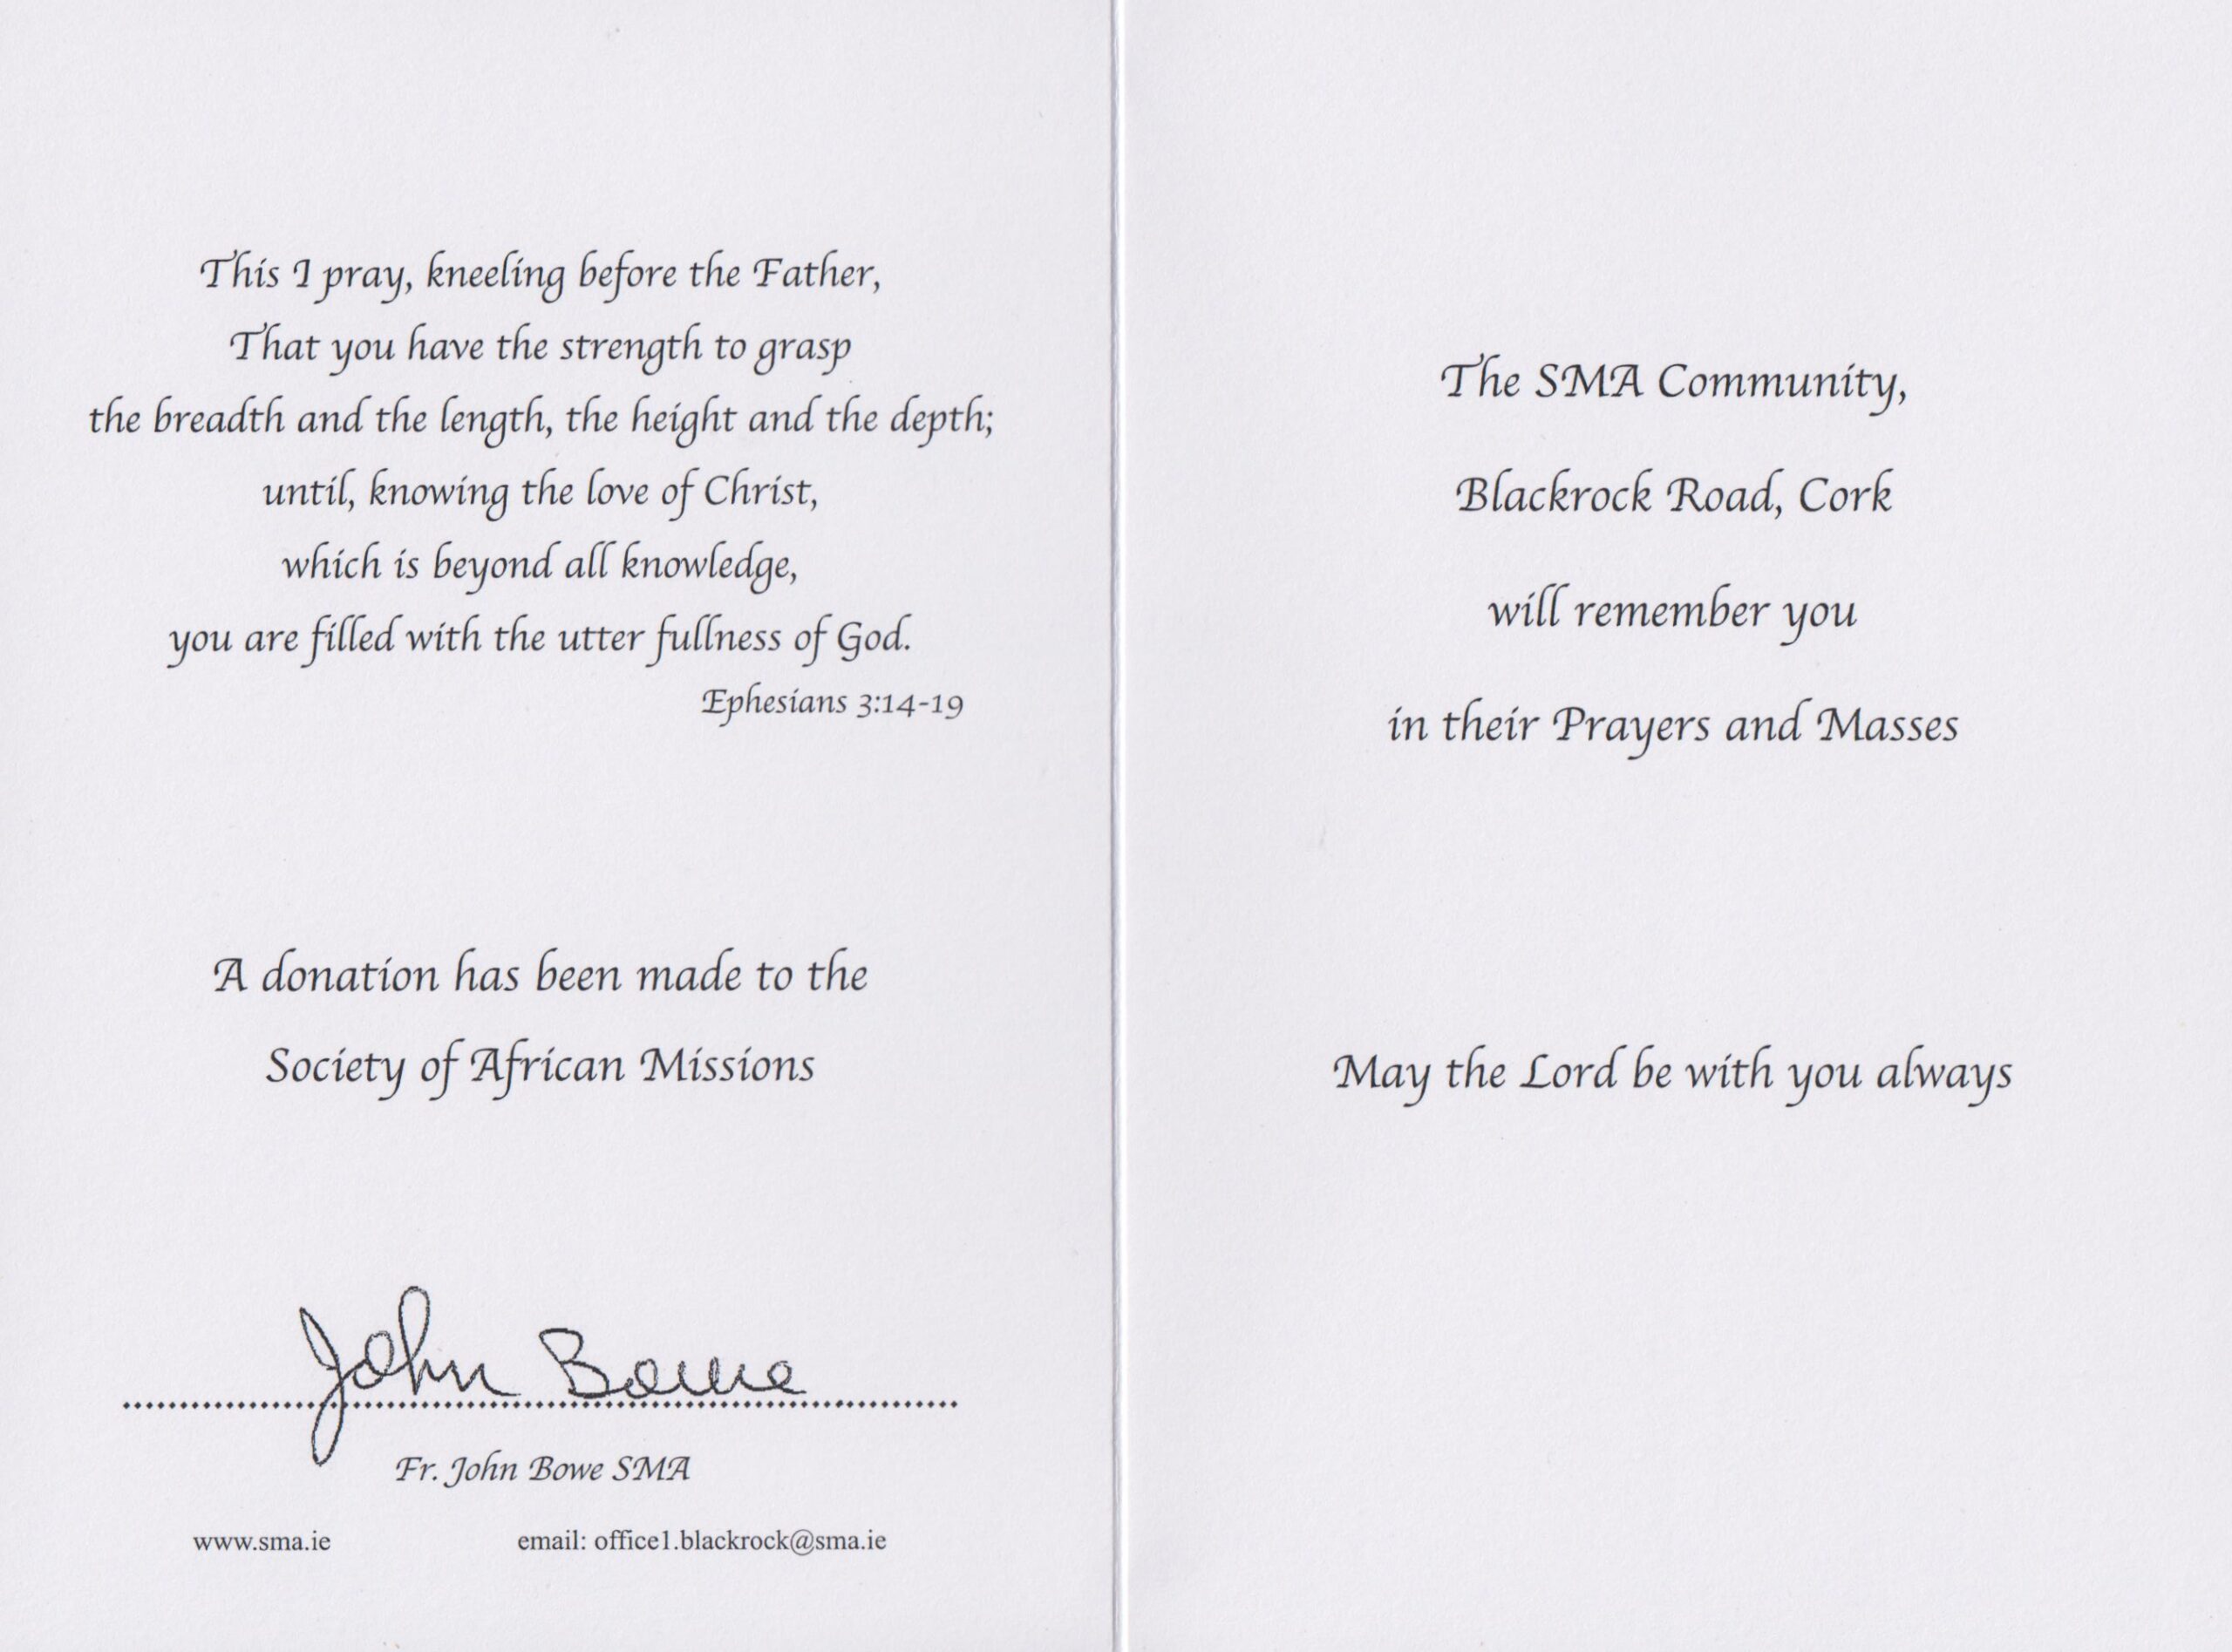 This I pray, kneeling before the Father,
That you have the strength to grasp
the breadth and the length, the height and the depth;
until, knowing the love of Christ,
which is beyond all knowledge,
you are filled with the utter fullness of God.
Ephesians 3:14-19
A donation has been made to the
Society of African Missions
John Bowe
Fr. John Bowe SMA
www.sma.ie email: office1.blackrock@sma.ie
The SMA Community,
Blackrock Road, Cork
will remember you
in their Prayers and Masses
May the Lord be with you always